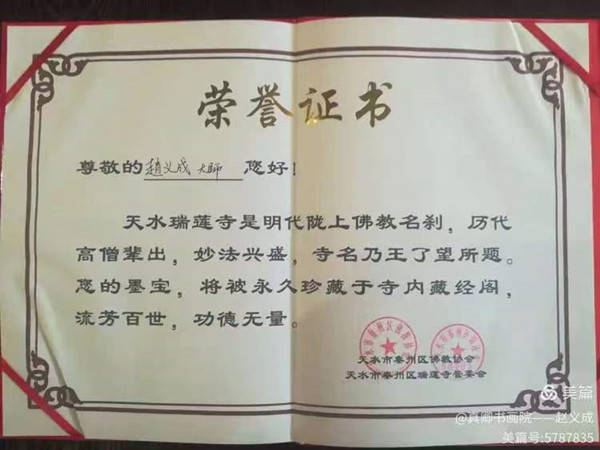 荣誉证书
尊敬的趙义成大师 您好！
天水瑞莲寺是明代陇上佛教名刹，历代
高僧辈出，妙法兴盛，寺名乃王了望所题。
您的墨宝，将被永久珍藏于寺内藏经阁，
流芳百世，功德无量。
天水市秦州区佛教协会
天水市秦州区瑞莲寺管委会
美篇
@真卿书画院——赵义成
美篇号:5787835